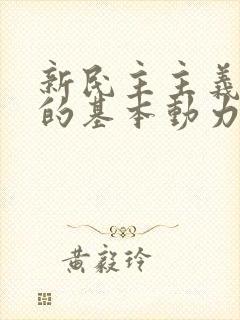 新民主主義
的基本動力
黃毅玲